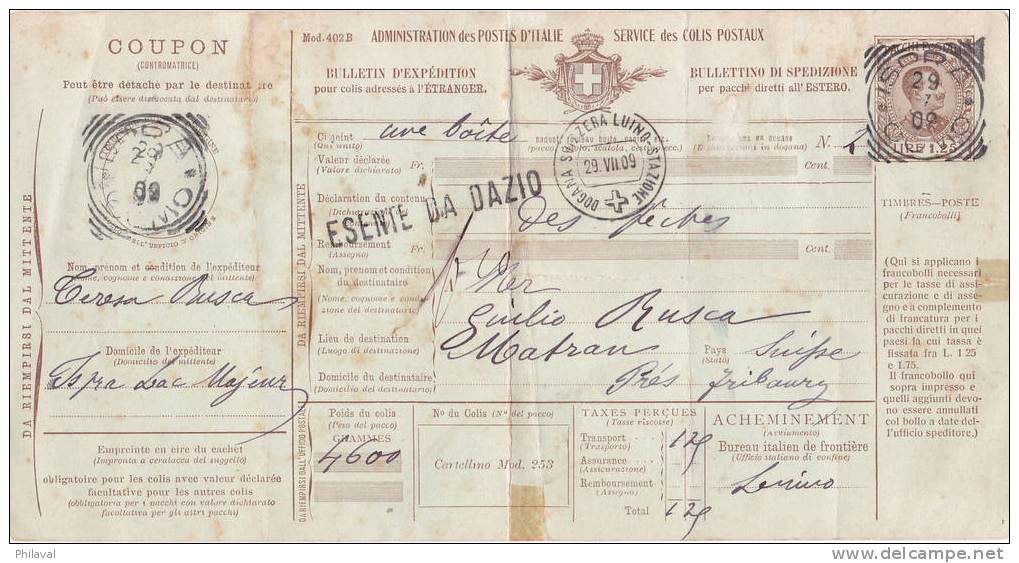 COUPON
(CONTROMATRICE)
Peut être détaché par le destinataire
(Può essere distaccata dal destinatario)
ISPRA
29
7
09
Nom, prénom et condition de l'expéditeur
(Nome, cognome e condizione del mittente)
Teresa Rusca
Domicile de l'expéditeur
(Domicilio del mittente)
Ispra Lac Majeur
Empreinte en cire du cachet
(Impronta a ceralacca del suggello)
obligatoire pour les colis avec valeur déclarée
facultative pour les autres colis
(obbligatoria per i pacchi con valore dichiarato
facoltativa per gli altri pacchi)
DA RIEMPIRSI DAL MITTENTE
Mod. 402 B
ADMINISTRATION des POSTES D'ITALIE
SERVICE des COLIS POSTAUX
BULLETIN D'EXPÉDITION
pour colis adressés à l'ÉTRANGER.
BULLETTINO DI SPEDIZIONE
per pacchi diretti all'ESTERO.
DA RIEMPIRSI DAL MITTENTE
Ci-joint
(Qui unito)
une boîte
N. 1
Valeur déclarée
(Valore dichiarato)
Fr.
Cent.
DOGANA SVIZZERA LUINO-STAZIONE
29.VII.09
Déclaration du contenu
des pêches
ESENTE DA DAZIO
Remboursement
(Assegno)
Fr.
Cent.
Nom, prénom et condition
du destinataire
(Nome, cognome e condizione del destinatario)
Giulio Rusca
Lieu de destination
(Luogo di destinazione)
Matran
Pays
(Stato)
Suisse
Domicile du destinataire
(Domicilio del destinatario)
Prés Fribourg
DA RIEMPIRSI DALL'UFFICIO POSTALE
Poids du colis
(Peso del pacco)
GRAMMES
4600
No du Colis (No del pacco)
Cartellino Mod. 253
TAXES PERÇUES
(Tasse riscosse)
Transport
(Trasporto)
1.25
Assurance
(Assicurazione)
Remboursement
(Assegno)
Total
1.25
ACHEMINEMENT
(Avviamento)
Bureau italien de frontière
(Ufficio italiano di confine)
Luino
PACCHI POSTALI
ISPRA
29
7
09
LIRE 1.25
TIMBRES-POSTE
(Francobolli)
(Qui si applicano i
francobolli necessari
per le tasse di assi-
curazione e di asse-
gno e a complemento
di francatura per i
pacchi diretti in quei
paesi la cui tassa è
fissata fra L. 1 25
e 1.75.
Il francobollo qui
sopra impresso e
quelli aggiunti devo-
no essere annullati
col bollo a date del-
l'ufficio speditore.)
Philaval
http://www.delcampe.net